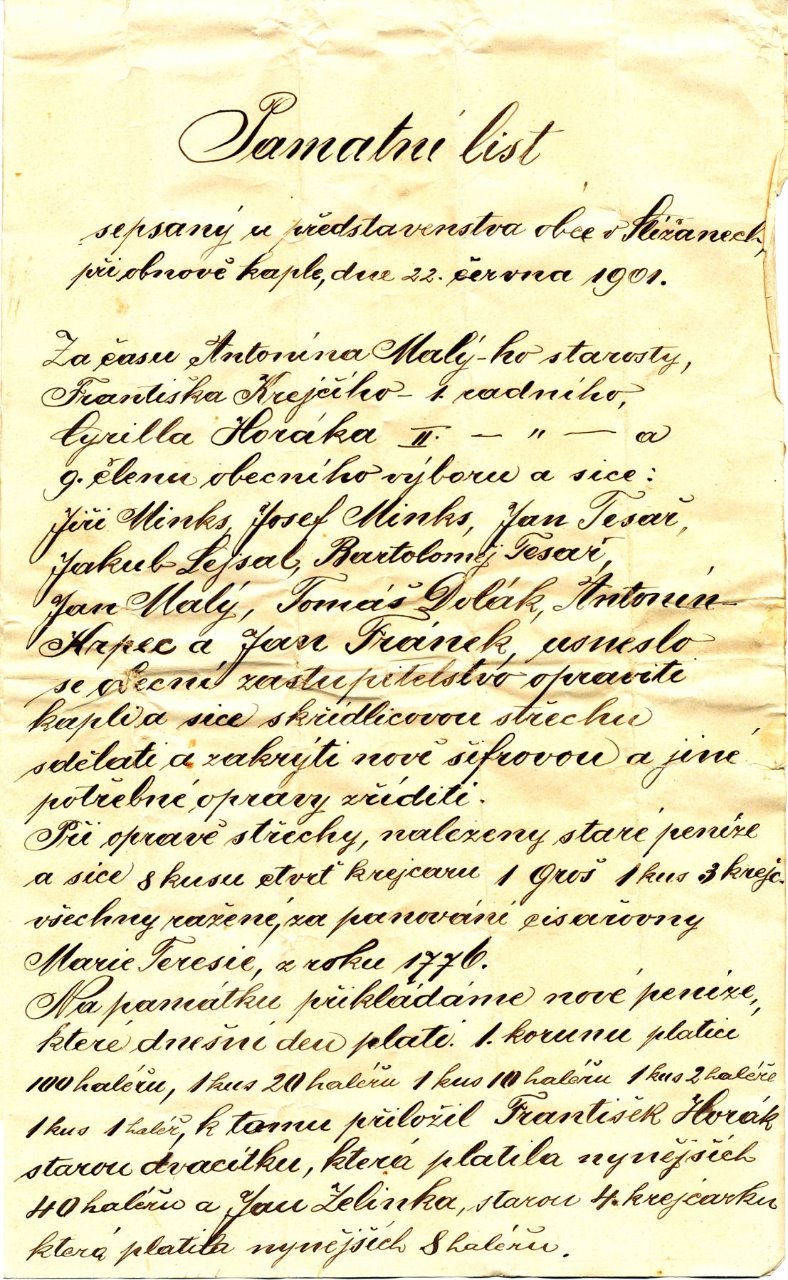 Pamatní list
sepsaný u představenstva obce v Střížanech,
při obnově kaple, dne 22. června 1901.
Za času Antonína Malý-ho starosty,
Františka Krejčího - 1. radního,
Cyrilla Horáka II. — " — a
9. členu obecního výboru a sice:
Jiří Minks, Josef Minks, Jan Tesař,
Jakub Lejsal, Bartoloměj Tesař,
Jan Malý, Tomáš Dolák, Antonín
Krpec a Jan Fránek, usneslo
se obecní zastupitelstvo opraviti
kapli a sice skřidlicovou střechu
sdělati a zakrýti nově šifrovou a jiné
potřebné opravy zříditi.
Při opravě střechy, nalezeny staré peníze
a sice 8 kusu čtvrť krejcaru 1 Groš 1 kus 3 krejc.
všechny ražené, za panování cisařovny
Marie Teresie, z roku 1776.
Na památku přikládáme nové peníze,
které dnešní den plati. 1. korunu platici
100 haléřu, 1 kus 20 haléřu 1 kus 10 haléřu 1 kus 2 haléře
1 kus 1 haléř, k tomu přiložil František Horák
starou dvacítku, která platila nynějších
40 haléřu a Jan Zelinka, starou 4. krejcarku
která platila nynějších 8 haléřu.